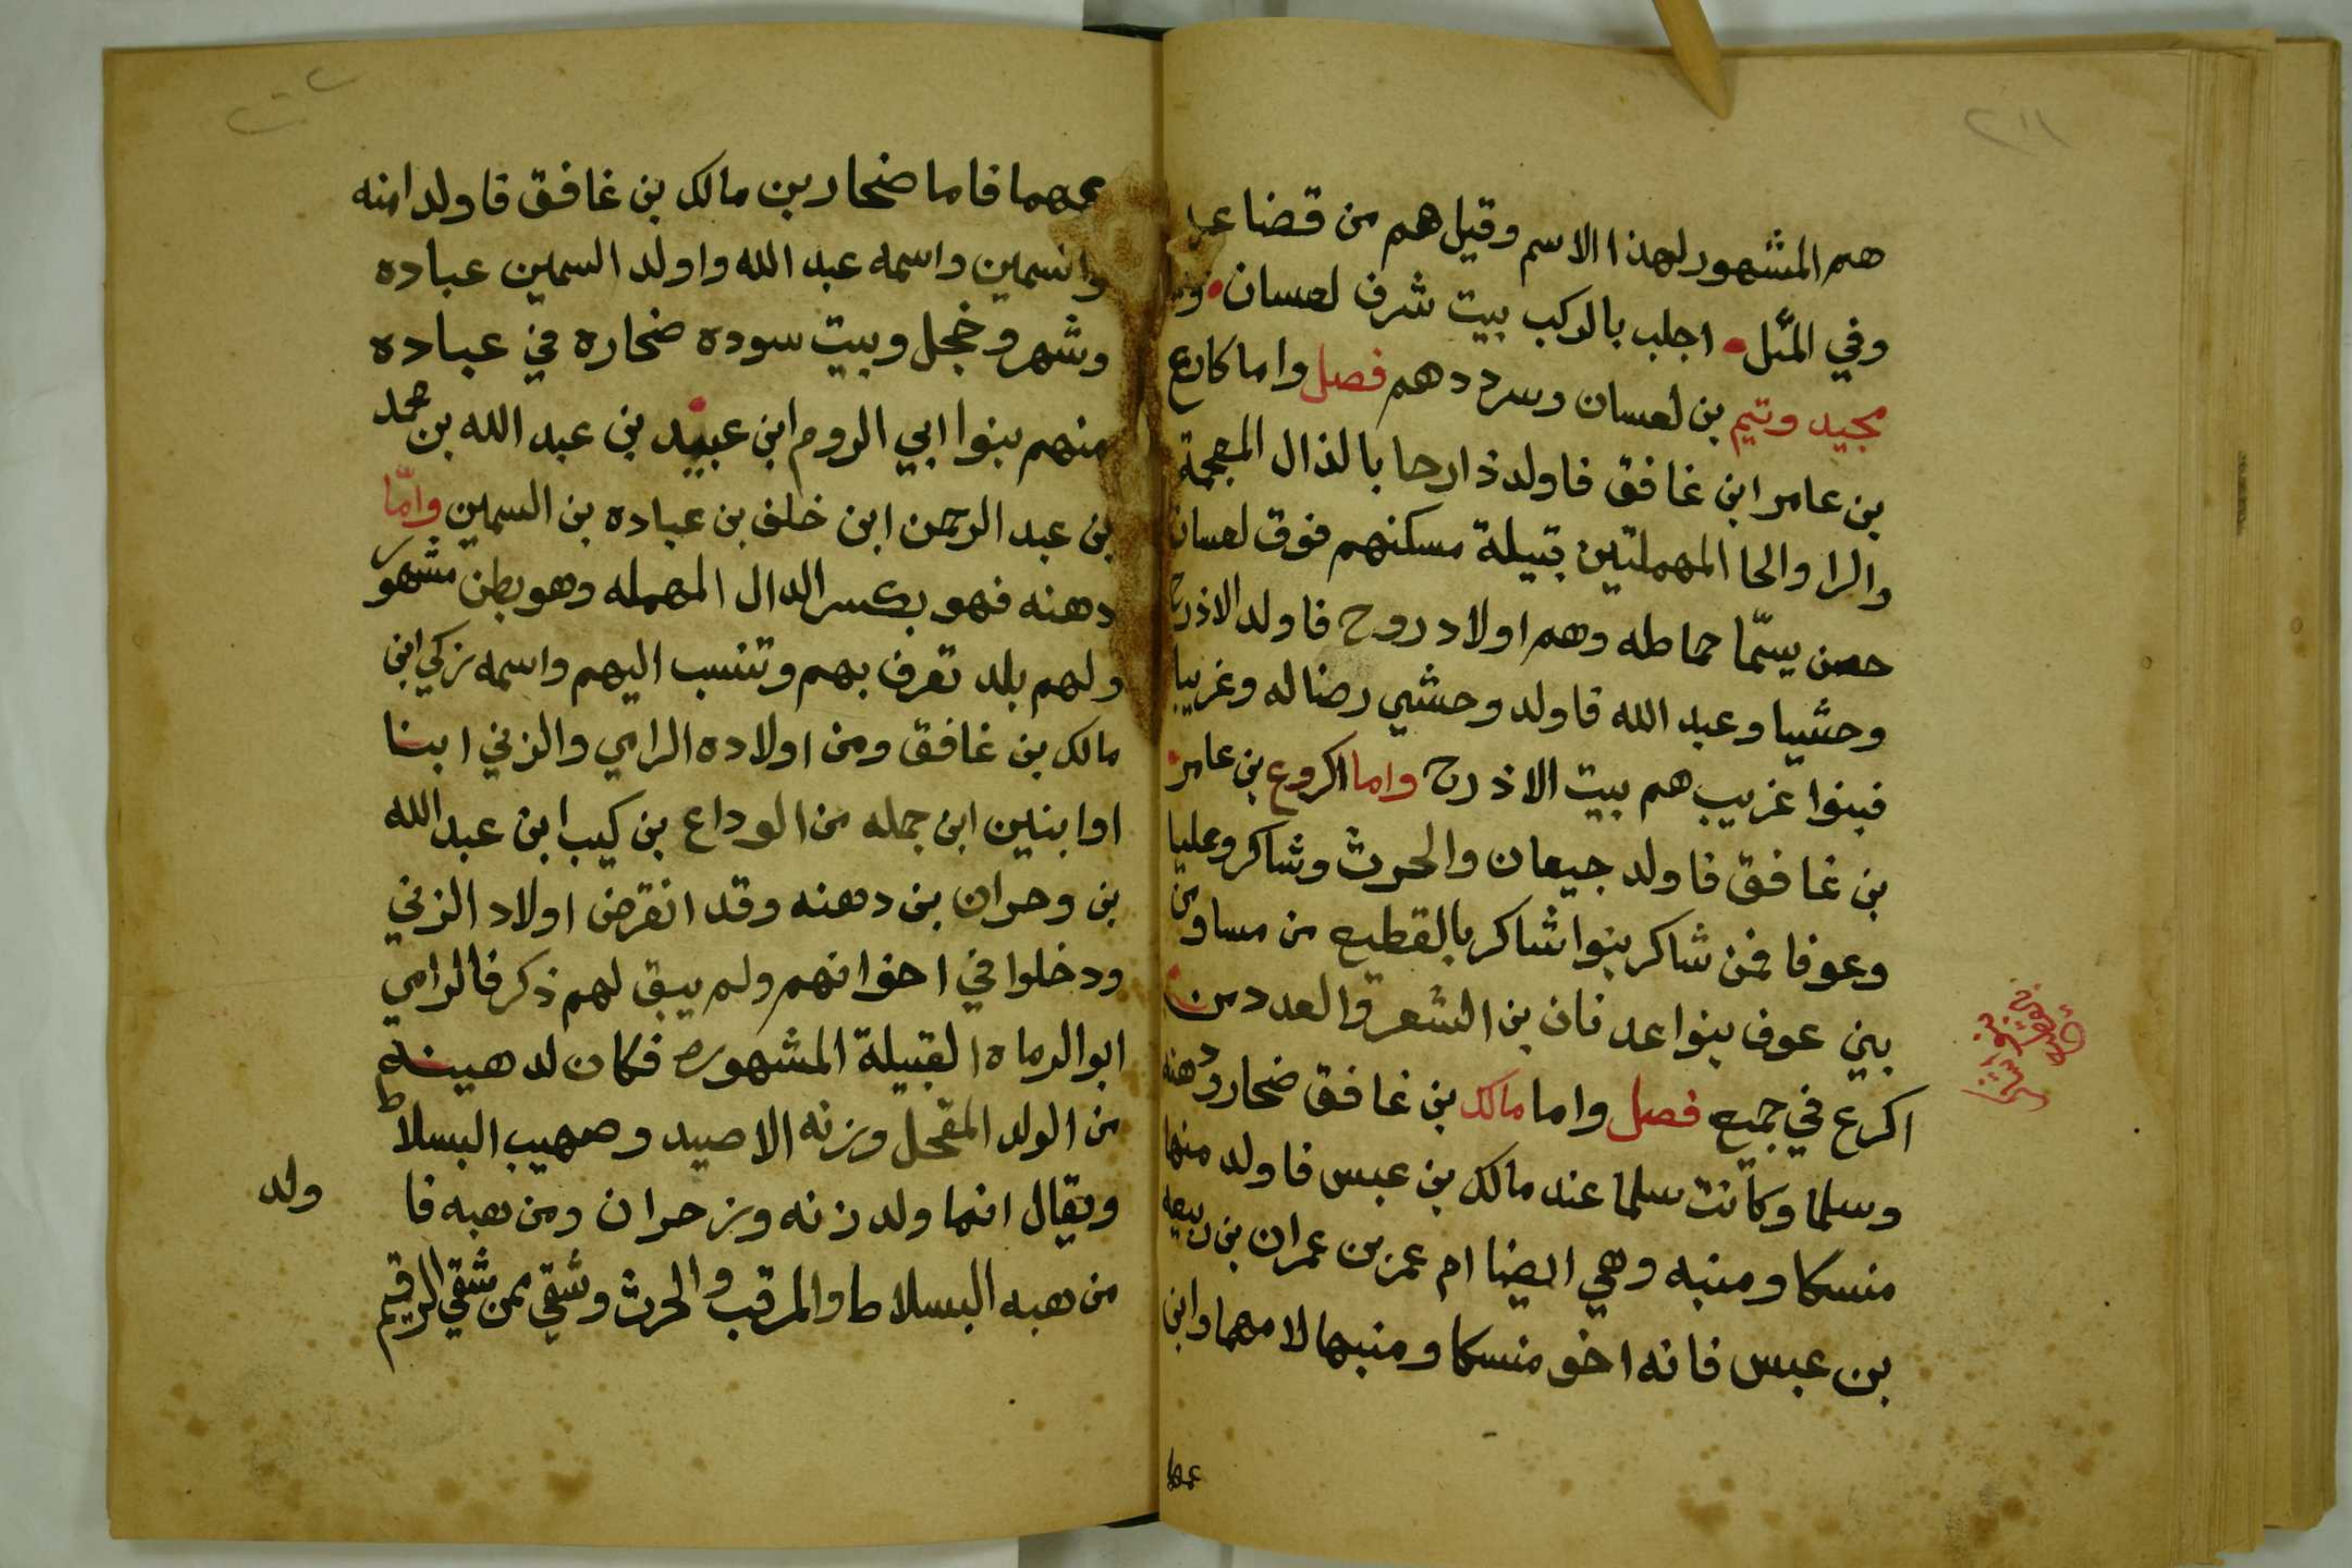 هم المشهور لهذا الاسم وقيل هم من قضاعه
وفي المثل اجلب بالركب بيت شرف لعسان
مجيد وتيم بن لعسان وسرددهم فصل واما كارع
بن عامر ابن غافق فاولد ذارحا بالذال المعجمة
والرا والحا المهملتين قبيلة مسكنهم فوق لعسان
حصن يسمّا حماطه وهم اولاد روح فاولد الاذرح
وحشيا وعبد الله فاولد وحشي رضاله وغريبا
فبنوا غريب هم بيت الاذرح واما اكروع بن عامر
بن غافق فاولد جيعان والحرث وشاكر وعليا
وعوفا فمن شاكر بنوا شاكر بالقطيع من مساوى
بني عوف بنوا عدنان بن الشعر والعدد من
اكرع في جميع فصل واما مالك بن غافق ضحار ودهنه
وسلما وكانت سلما عند مالك بن عبس فاولد منها
منسكا ومنبه وهي ايضا ام عمر بن عمران بن ربيعه
بن عبس فانه اخو منسكا ومنبها لامهما وابن
عمها
عمهما فاما ضحار بن مالك بن غافق فاولد امنه
والسمين واسمه عبد الله واولد السمين عباده
وشهر وخجل وبيت سوده ضحاره في عباده
منهم بنوا ابي الروم ابن عبيد بن عبد الله بن محمد
بن عبد الرحمن ابن خلف بن عباده بن السمين وامّا
دهنه فهو بكسر الدال المهمله وهو بطن مشهور
ولهم بلد تعرف بهم وتنسب اليهم واسمه زكي ابن
مالك بن غافق ومن اولاده الرامي والزني ابنا
اوابنين ابن جمله من الوداع بن كيب ابن عبد الله
بن وحران بن دهنه وقد انقرض اولاد الزني
ودخلوا في اخوانهم ولم يبق لهم ذكر فالرامي
ابوالرماه القبيلة المشهوره فكان لدهينه
من الولد المقحل وزنه الاصيد وصهيب البسلاط
ويقال انما ولد زنه وبن حران ومن هبه فا
ولد
من هبه البسلاط والمرقب والحرث وشقي فمن شقي الرقيم